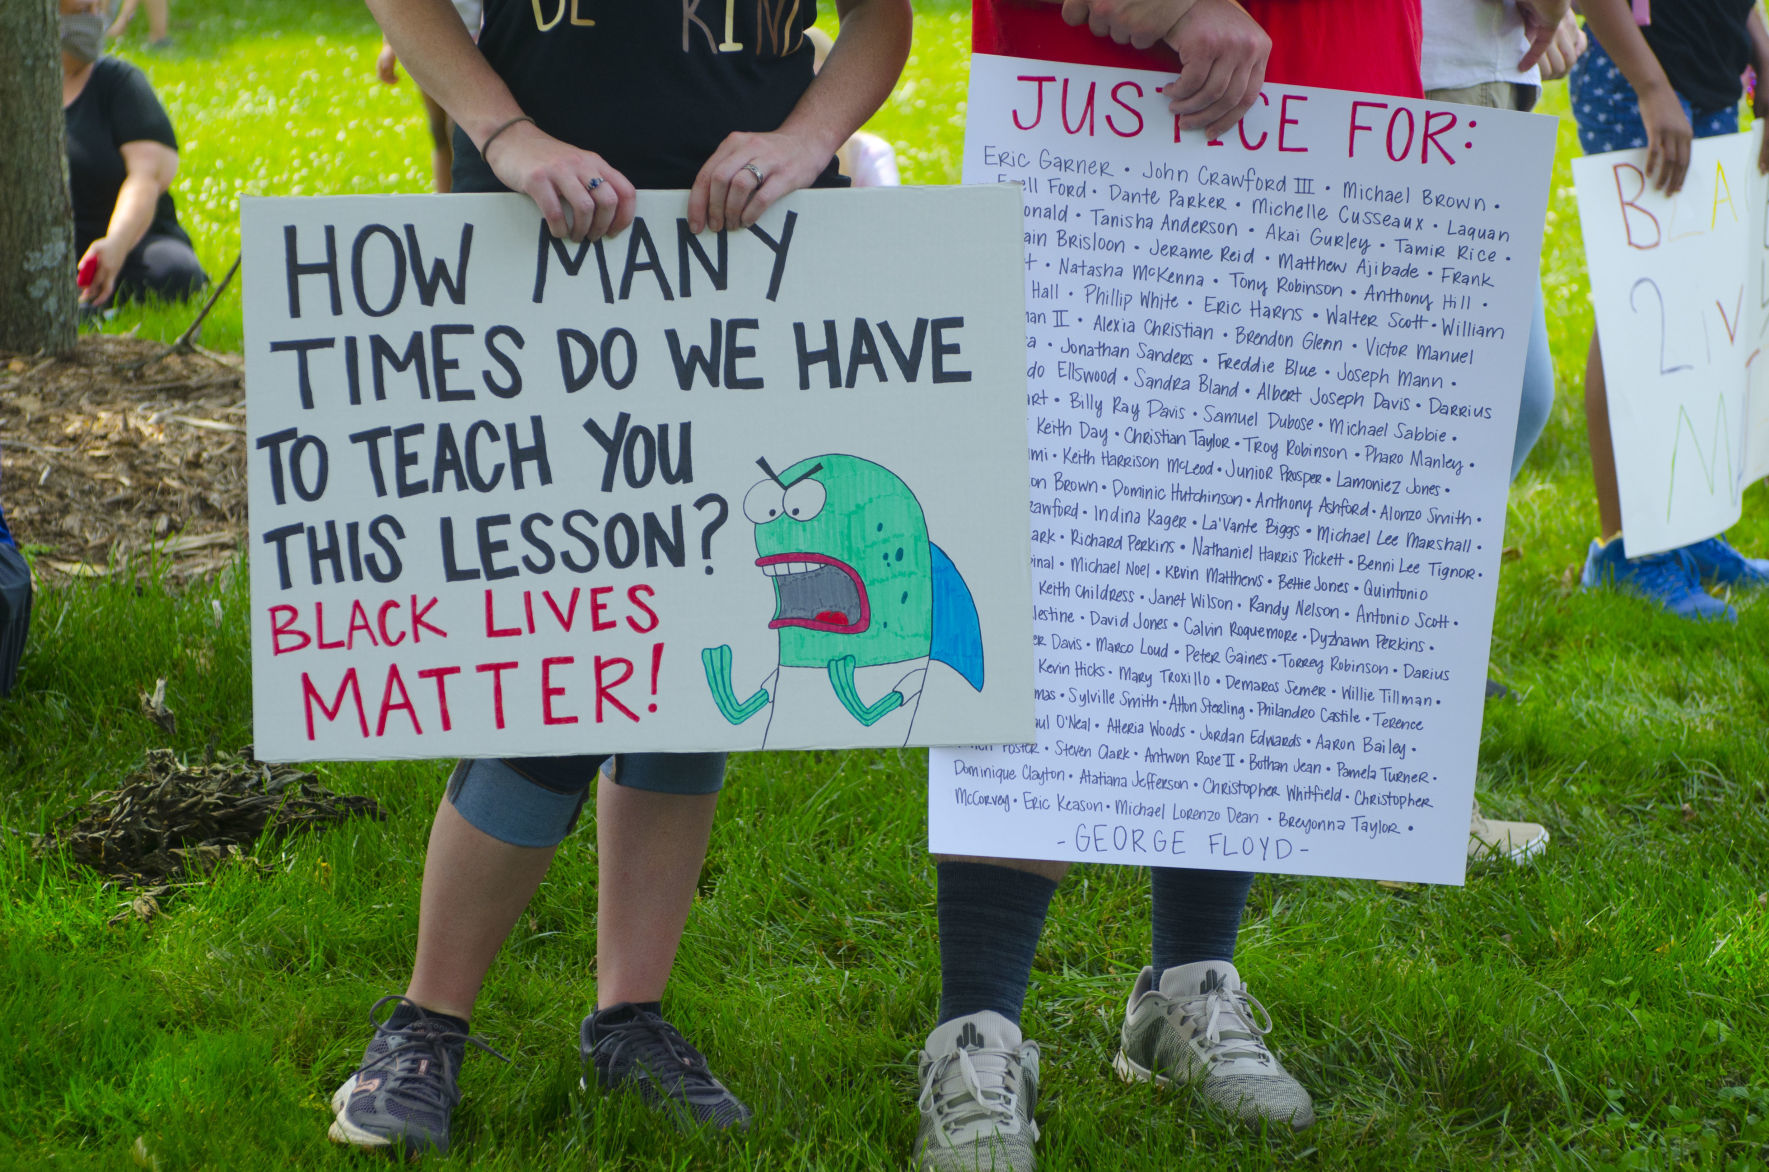 BE KIND
HOW MANY
TIMES DO WE HAVE
TO TEACH YOU
THIS LESSON?
BLACK LIVES
MATTER!
JUSTICE FOR:
Eric Garner • John Crawford III • Michael Brown •
Ford • Dante Parker • Michelle Cusseaux • Laquan
onald • Tanisha Anderson • Akai Gurley • Tamir Rice •
ain Brisloon • Jerame Reid • Matthew Ajibade • Frank
t • Natasha McKenna • Tony Robinson • Anthony Hill •
Hall • Phillip White • Eric Harris • Walter Scott • William
an II • Alexia Christian • Brendon Glenn • Victor Manuel
a • Jonathan Sanders • Freddie Blue • Joseph Mann •
do Ellswood • Sandra Bland • Albert Joseph Davis • Darrius
art • Billy Ray Davis • Samuel Dubose • Michael Sabbie •
Keith Day • Christian Taylor • Troy Robinson • Pharo Manley •
mi • Keith Harrison McLeod • Junior Prosper • Lamoniez Jones •
on Brown • Dominic Hutchinson • Anthony Ashford • Alonzo Smith •
rawford • Indina Kager • La'Vante Biggs • Michael Lee Marshall •
ark • Richard Perkins • Nathaniel Harris Pickett • Benni Lee Tignor •
inal • Michael Noel • Kevin Matthews • Bettie Jones • Quintonio
Keith Childress • Janet Wilson • Randy Nelson • Antonio Scott •
lestine • David Jones • Calvin Roquemore • Dyzhawn Perkins •
er Davis • Marco Loud • Peter Gaines • Torrey Robinson • Darius
Kevin Hicks • Mary Troxillo • Demaros Semer • Willie Tillman •
mas • Sylville Smith • Alton Sterling • Philandro Castile • Terence
aul O'Neal • Alteria Woods • Jordan Edwards • Aaron Bailey •
Foster • Steven Clark • Antwon Rose II • Bothan Jean • Pamela Turner •
Dominique Clayton • Atatiana Jefferson • Christopher Whitfield • Christopher
McCorvey • Eric Reason • Michael Lorenzo Dean • Breyonna Taylor •
- GEORGE FLOYD -
BLA
LIV
M